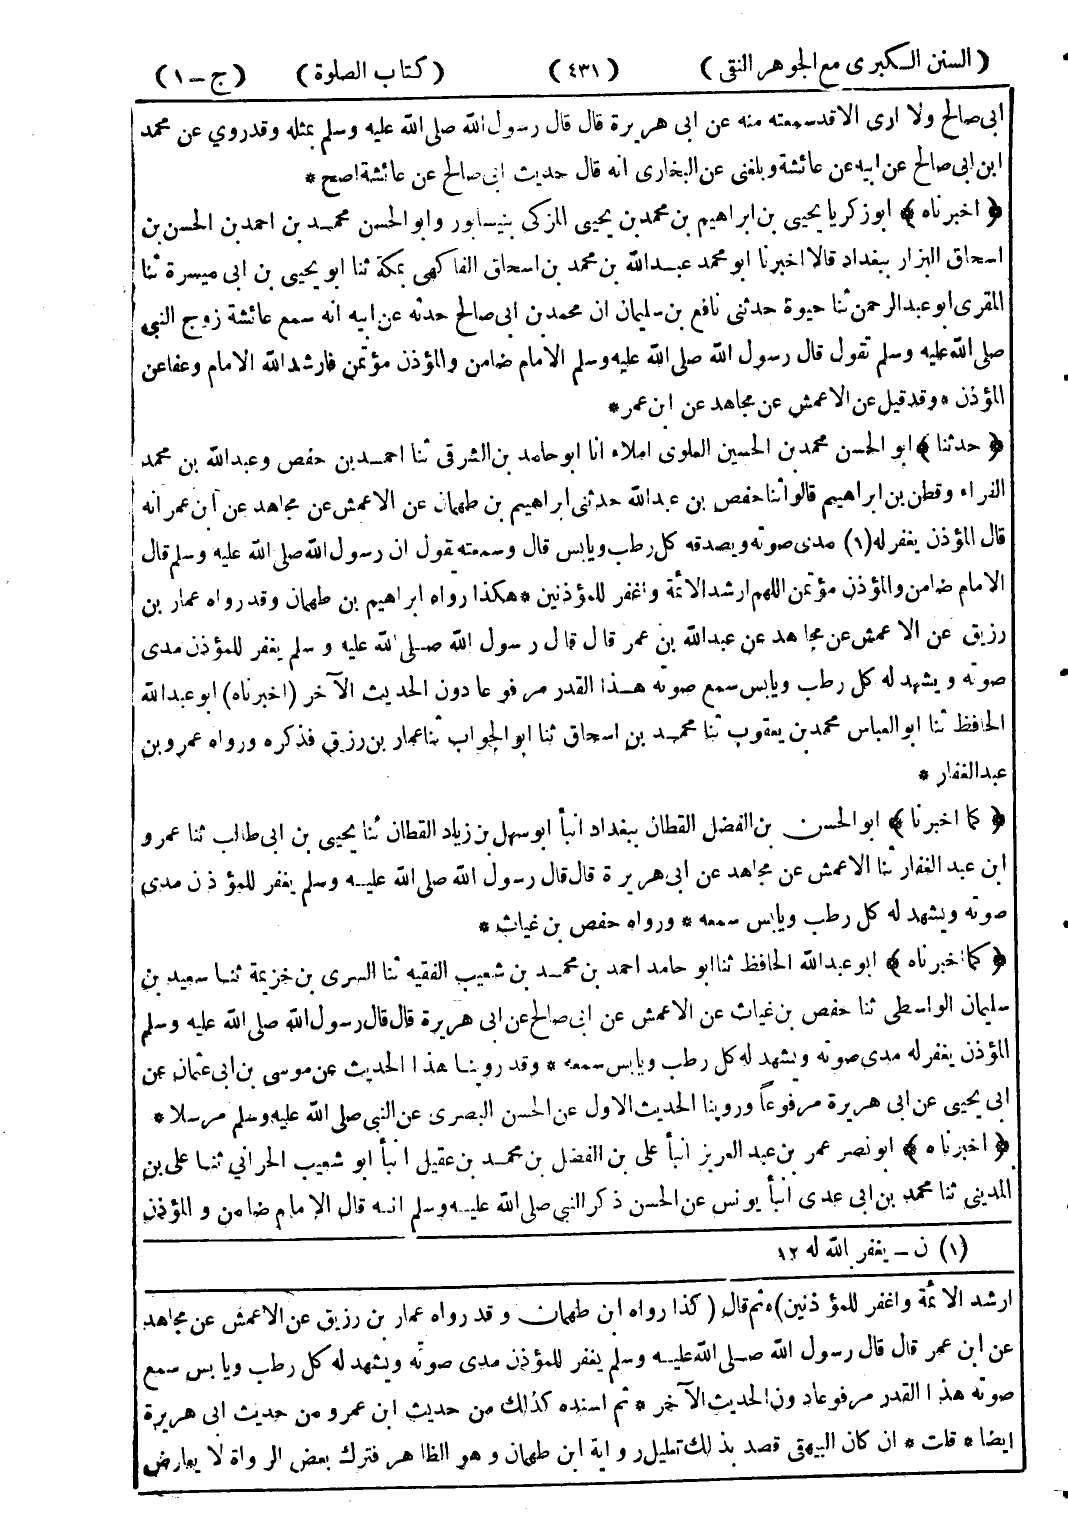 (السنن الكبرى مع الجوهر النقى) (٤٣١) (كتاب الصلوة) (ج – ١)
ابى صالح ولا ارى الا قد سمعته منه عن ابى هريرة قال قال رسول الله صلى الله عليه وسلم بمثله وقد روي عن محمد
ابن ابى صالح عن ابيه عن عائشة وبلغنى عن البخارى انه قال حديث ابى صالح عن عائشة اصح *
﴿ اخبرناه ﴾ ابو زكريا يحيى بن ابراهيم بن محمد بن يحيى المزكى بنيسابور وابو الحسن محمد بن احمد بن الحسن بن
اسحاق البزار ببغداد قالا اخبرنا ابو محمد عبد الله بن محمد بن اسحاق الفاكهى بمكة ثنا ابو يحيى بن ابى ميسرة ثنا
المقرى ابو عبد الرحمن ثنا حيوة حدثنى نافع بن سليمان ان محمد بن ابى صالح حدثه عن ابيه انه سمع عائشة زوج النبي
صلى الله عليه وسلم تقول قال رسول الله صلى الله عليه وسلم الامام ضامن والمؤذن مؤتمن فارشد الله الامام وعفا عن
المؤذن * وقد قيل عن الاعمش عن مجاهد عن ابن عمر *
﴿ حدثنا ﴾ ابو الحسن محمد بن الحسين العلوى املاء انا ابو حامد بن الشرقى ثنا احمد بن حفص وعبد الله بن محمد
الفراء وقطن بن ابراهيم قالوا ثنا حفص بن عبد الله حدثنى ابراهيم بن طهمان عن الاعمش عن مجاهد عن ابن عمر انه
قال المؤذن يغفر له (١) مدى صوته ويصدقه كل رطب ويابس قال وسمعته يقول ان رسول الله صلى الله عليه وسلم قال
الامام ضامن والمؤذن مؤتمن اللهم ارشد الائمة واغفر للمؤذنين * هكذا رواه ابراهيم بن طهمان وقد رواه عمار بن
رزيق عن الاعمش عن مجاهد عن عبد الله بن عمر قال قال رسول الله صلى الله عليه وسلم يغفر للمؤذن مدى
صوته ويشهد له كل رطب ويابس سمع صوته هذا القدر مرفوعا دون الحديث الآخر (اخبرناه) ابو عبد الله
الحافظ ثنا ابو العباس محمد بن يعقوب ثنا محمد بن اسحاق ثنا ابو الجواب ثنا عمار بن رزيق فذكره ورواه عمرو بن
عبد الغفار *
﴿ كما اخبرنا ﴾ ابو الحسن بن الفضل القطان ببغداد انبأ ابو سهل بن زياد القطان ثنا يحيى بن ابى طالب ثنا عمرو
ابن عبد الغفار ثنا الاعمش عن مجاهد عن ابى هريرة قال قال رسول الله صلى الله عليه وسلم يغفر للمؤذن مدى
صوته ويشهد له كل رطب ويابس سمعه * ورواه حفص بن غياث *
﴿ كما اخبرناه ﴾ ابو عبد الله الحافظ ثنا ابو حامد احمد بن محمد بن شعيب الفقيه ثنا السرى بن خزيمة ثنا سعيد بن
سليمان الواسطى ثنا حفص بن غياث عن الاعمش عن ابى صالح عن ابى هريرة قال قال رسول الله صلى الله عليه وسلم
المؤذن يغفر له مدى صوته ويشهد له كل رطب ويابس سمعه * وقد روينا هذا الحديث عن موسى بن ابى عثمان عن
ابى يحيى عن ابى هريرة مرفوعاً وروينا الحديث الاول عن الحسن البصرى عن النبي صلى الله عليه وسلم مرسلا *
﴿ اخبرناه ﴾ ابو نصر عمر بن عبد العزيز انبأ على بن الفضل بن محمد بن عقيل انبأ ابو شعيب الحراني ثنا على بن
المديني ثنا محمد بن ابى عدى انبأ يونس عن الحسن ذكر النبي صلى الله عليه وسلم انه قال الامام ضامن والمؤذن
(١) ن – يغفر الله له ١٢
ارشد الائمة واغفر للمؤذنين) * ثم قال (كذا رواه ابن طهمان وقد رواه عمار بن رزيق عن الاعمش عن مجاهد
عن ابن عمر قال قال رسول الله صلى الله عليه وسلم يغفر للمؤذن مدى صوته ويشهد له كل رطب ويابس سمع
صوته هذا القدر مرفوعا دون الحديث الآخر * ثم اسنده كذلك من حديث ابن عمر ومن حديث ابى هريرة
ايضا * قلت * ان كان البيهقى قصد بذلك تعليل رواية ابن طهمان وهو الظاهر فترك بعض الرواة لا يعارض